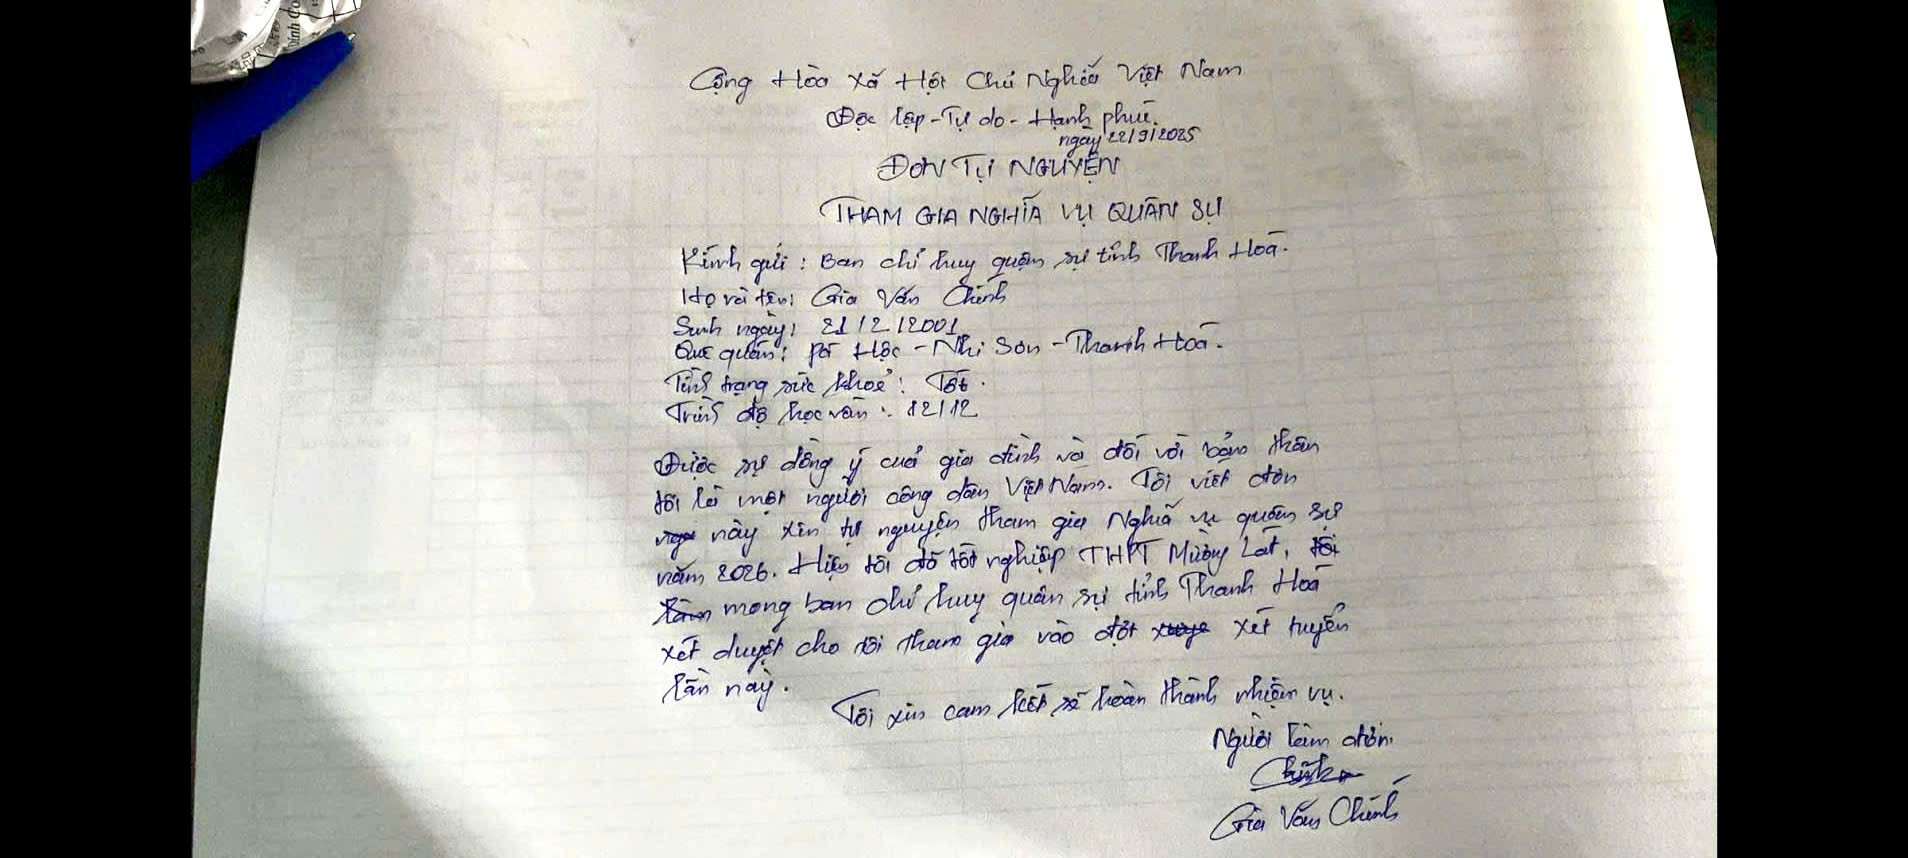 Cộng Hòa Xã Hội Chủ Nghĩa Việt Nam
Độc lập - Tự do - Hạnh phúc.
ngày 22/9/2025
ĐƠN TỰ NGUYỆN
THAM GIA NGHĨA VỤ QUÂN SỰ
Kính gửi : Ban chỉ huy quân sự tỉnh Thanh Hoá.
Họ và tên: Gia Văn Chính
Sinh ngày: 21/2/2001
Quê quán: Pá Hộc - Nhi Sơn - Thanh Hoá.
Tình trạng sức khoẻ : Tốt.
Trình độ học vấn : 12/12
Được sự đồng ý cuả gia đình và đối với bản thân
tôi là một người công dân Việt Nam. Tôi viết đơn
này xin tự nguyện tham gia Nghĩa vụ quân sự
năm 2026. Hiện tôi đã tốt nghiệp THPT Mường Lát, tôi
mong ban chỉ huy quân sự tỉnh Thanh Hoá
xét duyệt cho tôi tham gia vào đợt xét tuyển
lần này.
Tôi xin cam kết sẽ hoàn thành nhiệm vụ.
Người làm đơn.
Chính
Gia Văn Chính